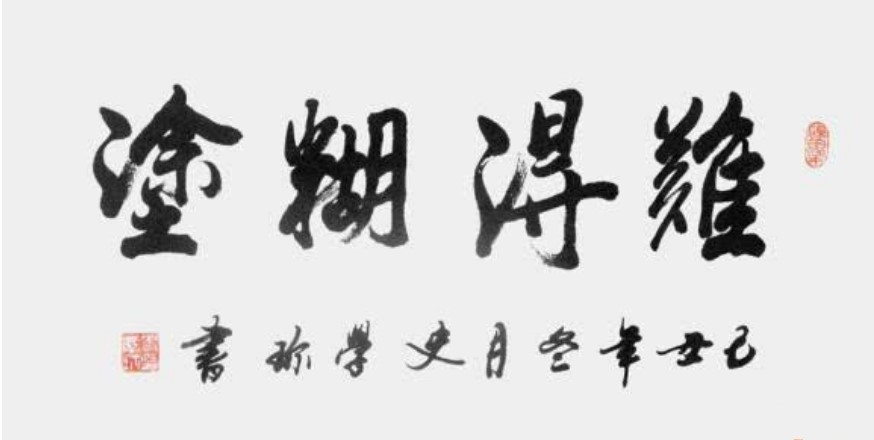 難得糊塗
己丑年叁月史學琮書